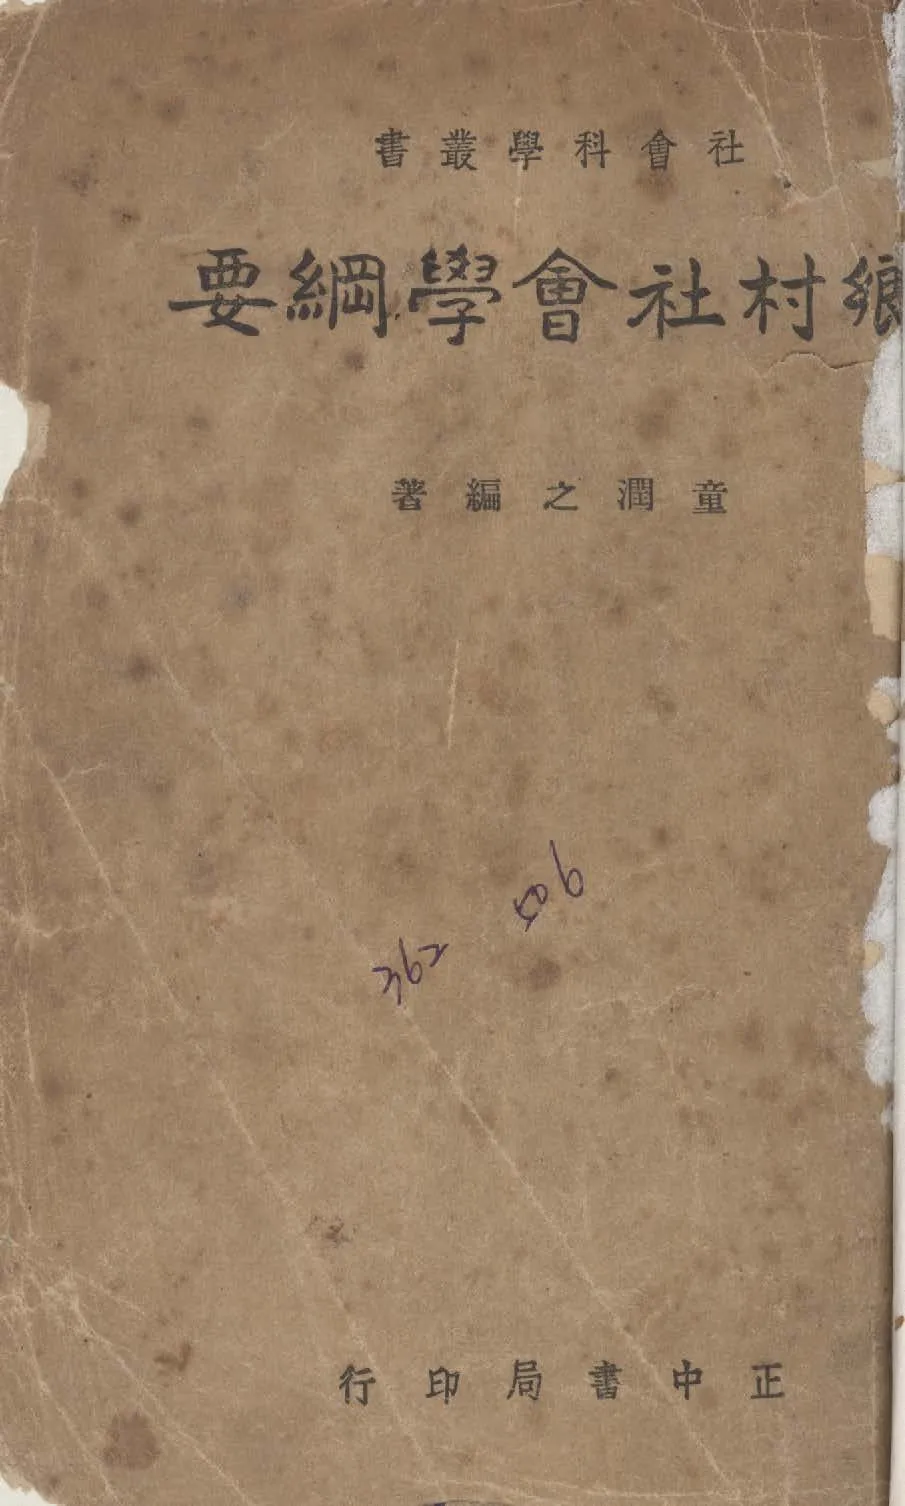 社會科學叢書
鄉村社會學綱要
童潤之編著
362 506
正中書局印行